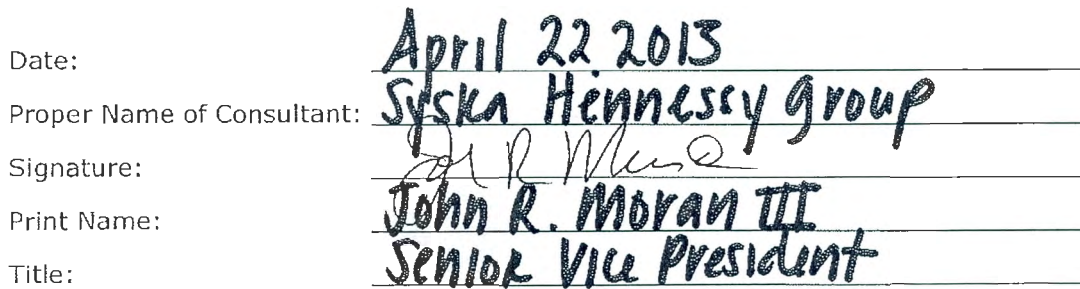 Date: April 22 2013
Proper Name of Consultant: Syska Hennessy Group
Signature: John R Moran
Print Name: John R. Moran III
Title: Senior Vice President